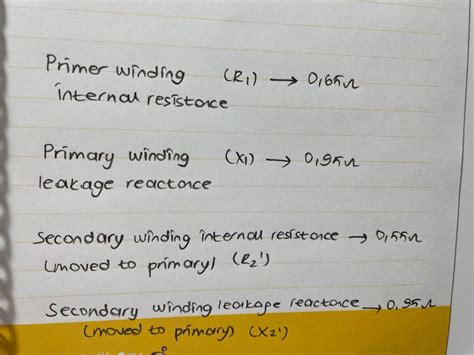 Primer winding (R1) → 0,65Ω
internal resistance
Primary winding (X1) → 0,95Ω
leakage reactance
Secondary winding internal resistance → 0,55Ω
(moved to primary) (R2')
Secondary winding leakage reactance → 0,95Ω
(moved to primary) (X2')